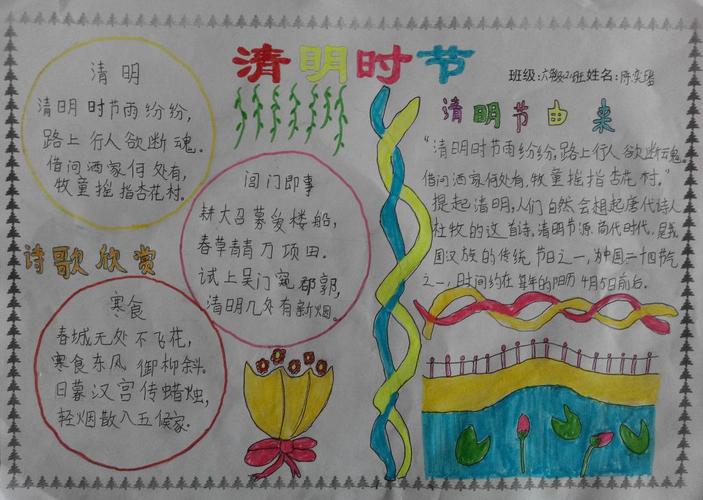 清明时节
班级:六年级(2)班姓名:陈奕
清明
清明时节雨纷纷,
路上行人欲断魂。
借问酒家何处有,
牧童摇指杏花村。
诗歌欣赏
门即事
耕大召募爱楼船,
春草青青万项田。
试上吴门窥郡郭,
清明几处有新烟。
寒食
春城无处不飞花,
寒食东风御柳斜。
日暮汉宫传蜡烛,
轻烟散入五侯家。
清明节由来
“清明时节雨纷纷,路上行人欲断魂。
借问酒家何处有,牧童摇指杏花村。”
提起清明,人们自然会想起唐代诗人
杜牧的这首诗,清明节源商代时代。是我
国汉族的传统节日之一,为中国二十四节气
之一,时间约在每年的阳历4月5日前后。